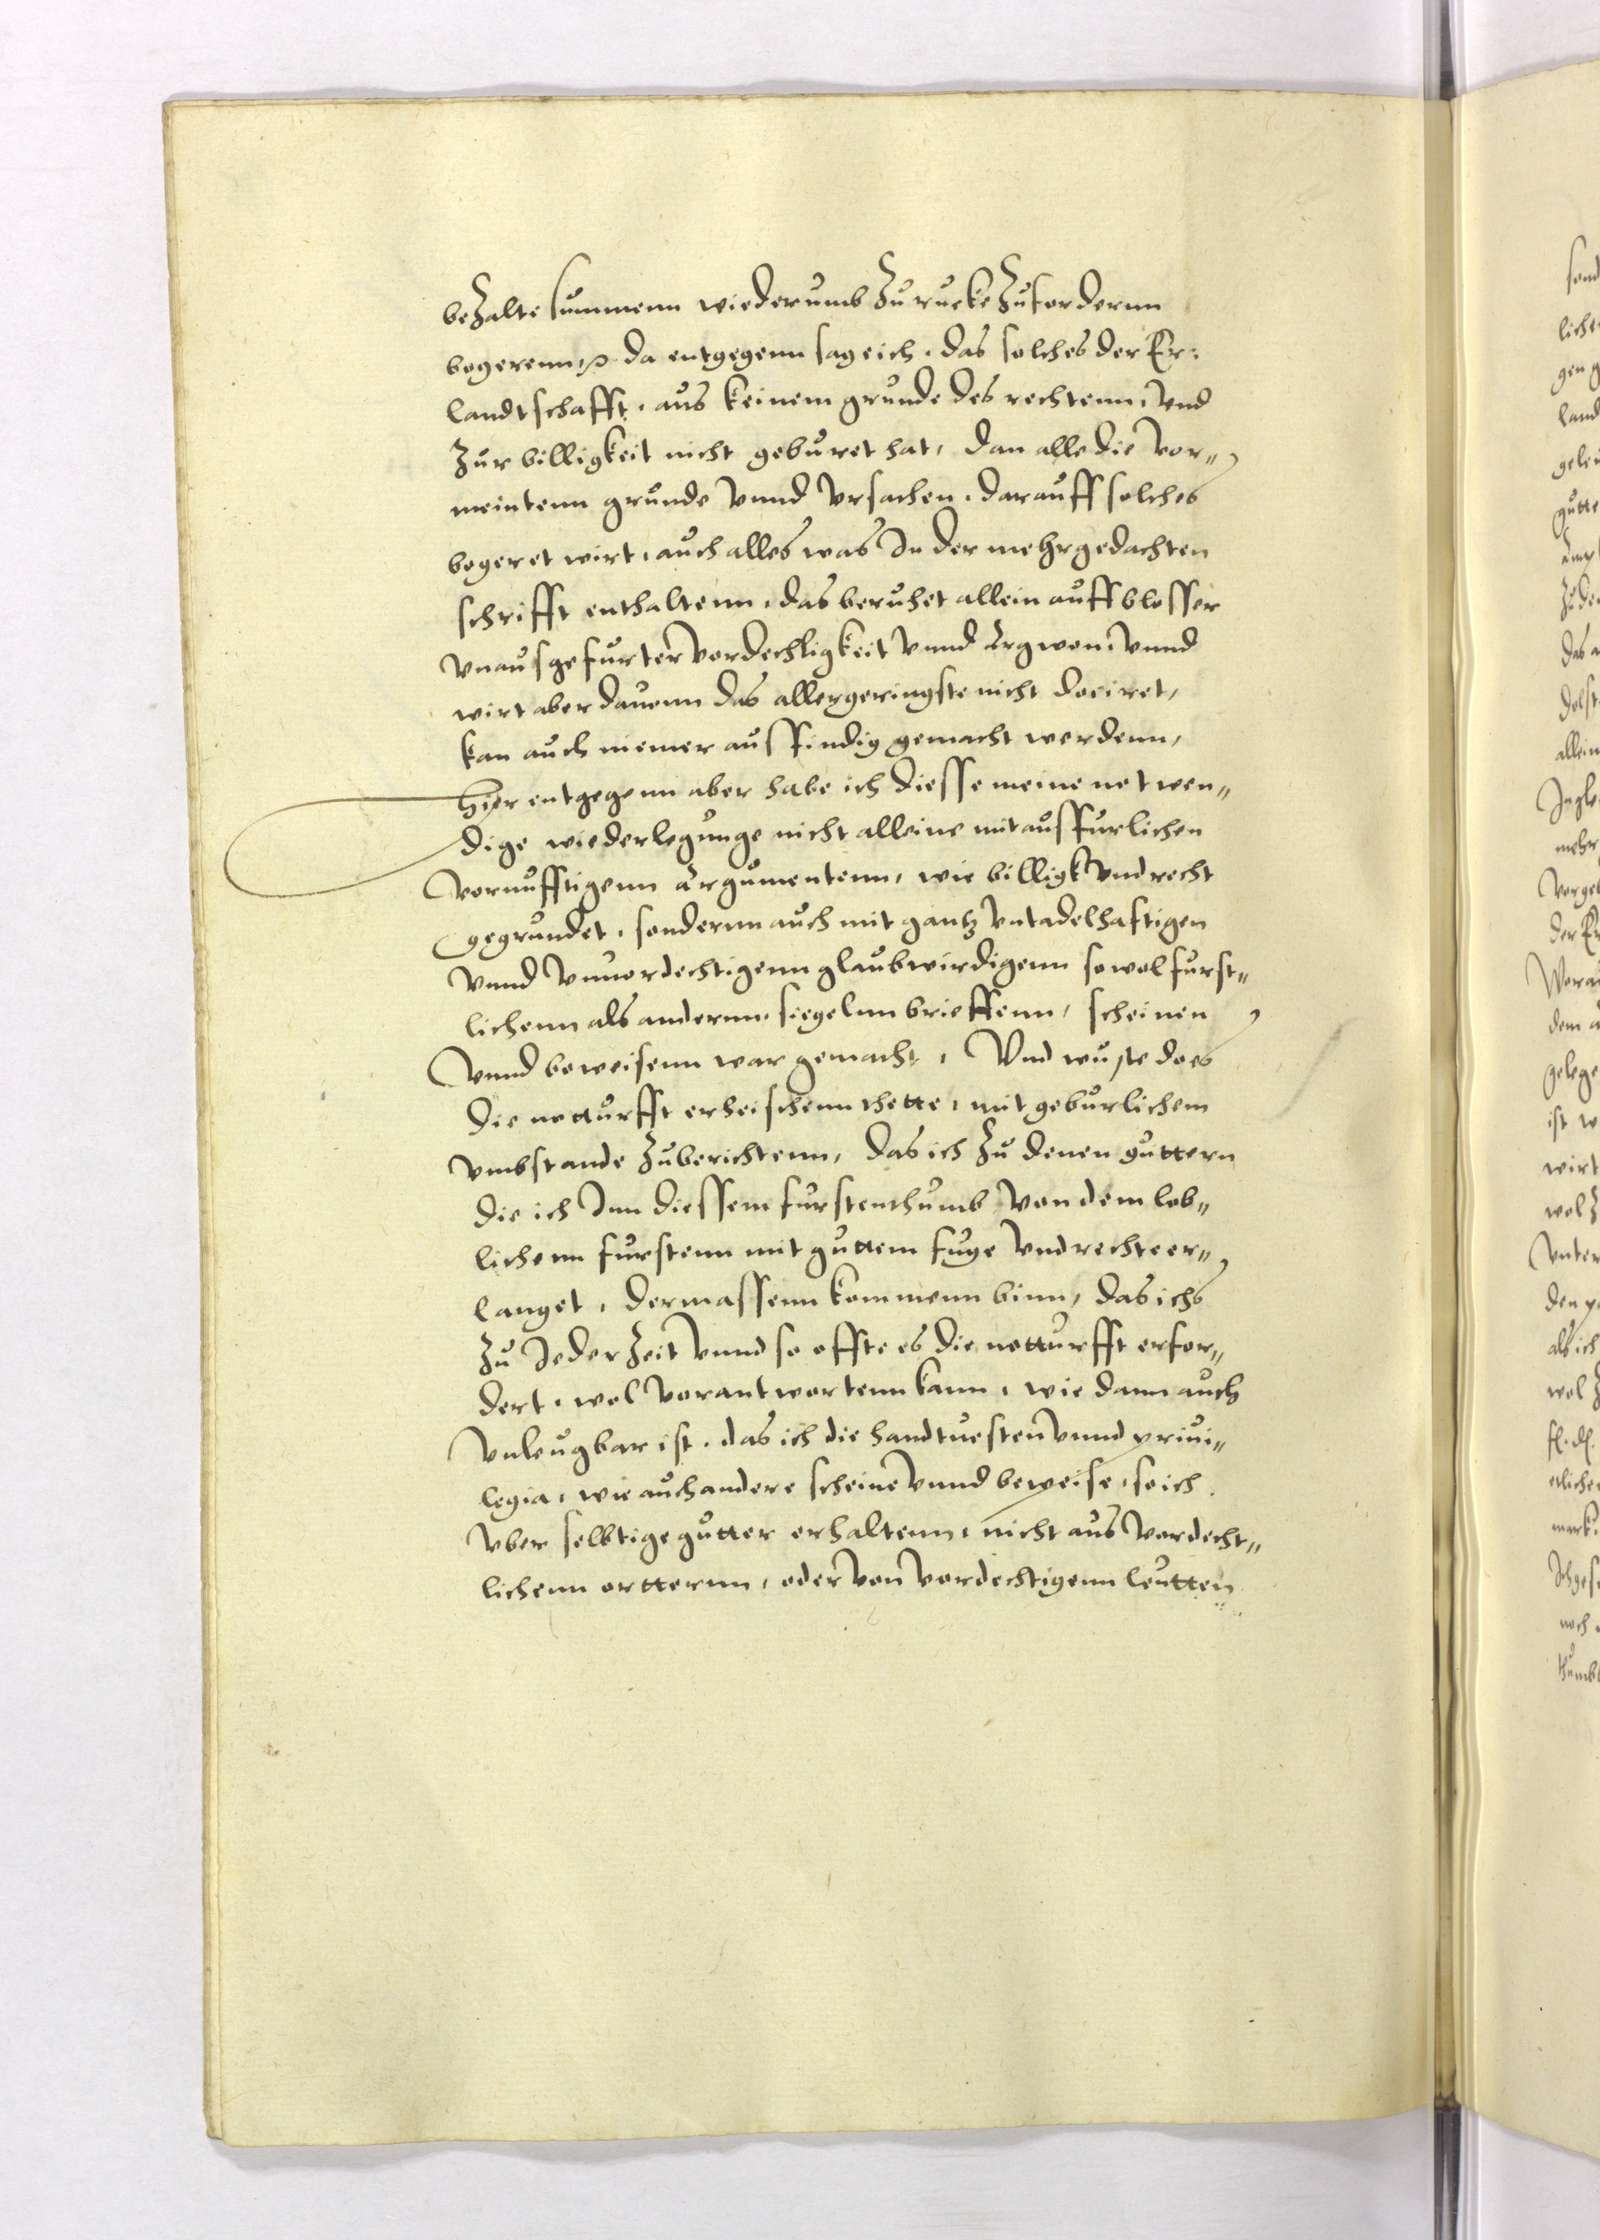 beZalte summenn wiederumb Zu rucke Zufordernn
begerenn, da entgegenn sage ich. das solches der Er:
landtschafft. aus keinem grunde des rechtenn, Vnd
Zur billigkeit nicht geburet hat, dan alle die vor„
meintenn grunde Vnnd Vrsachen. darauff solches
begeret wirt, auch alles was In der mehrgedachten
schrifft enthaltenn, das beruhet allein auff blosser
Vnausgefurter Vordechligkeit Vnnd Argwon, Vnnd
wirt aber dauonn das allergeringste nicht dociret,
kan auch niemer ausfindig gemacht werdenn,
hier entgegenn aber habe ich diesse meine notwen„
dige wiederlegunge nicht alleine mit ausfurlichen
Vornufftigenn Argumentenn, wie billigk Vnd recht
gegrundet, sondernn auch mit gantz Vntadelhaftigen
Vnnd Vnuordechtigenn glaubwirdigenn sowol furst„
lichenn als andernn, siegelnn brieffenn, scheinen
Vnnd beweisenn war gemacht, Vnd wuste does
die notturfft erheischenn thette, mit geburlichem
Vmbstande Zuberichtenn, das ich Zu denen guttern
die ich Inn diessem furstenthumb Von dem lob„
lichenn furstenn mit guttem fuge Vnd rechte er„
langet, dermassenn kommenn binn, das ichs
Zu Jeder Zeit Vnnd so offte es die notturfft erfor„
dert, wol Vorantwortenn kann, wie dann auch
Vnleugbar ist, das ich die handtuesten Vnnd priui„
legia, wie auch andere scheine Vnnd beweise, so ich
Vber selbtige gutter erhaltenn, nicht aus Vordecht„
lichenn ortternn, oder Von Vordechtigenn leutten